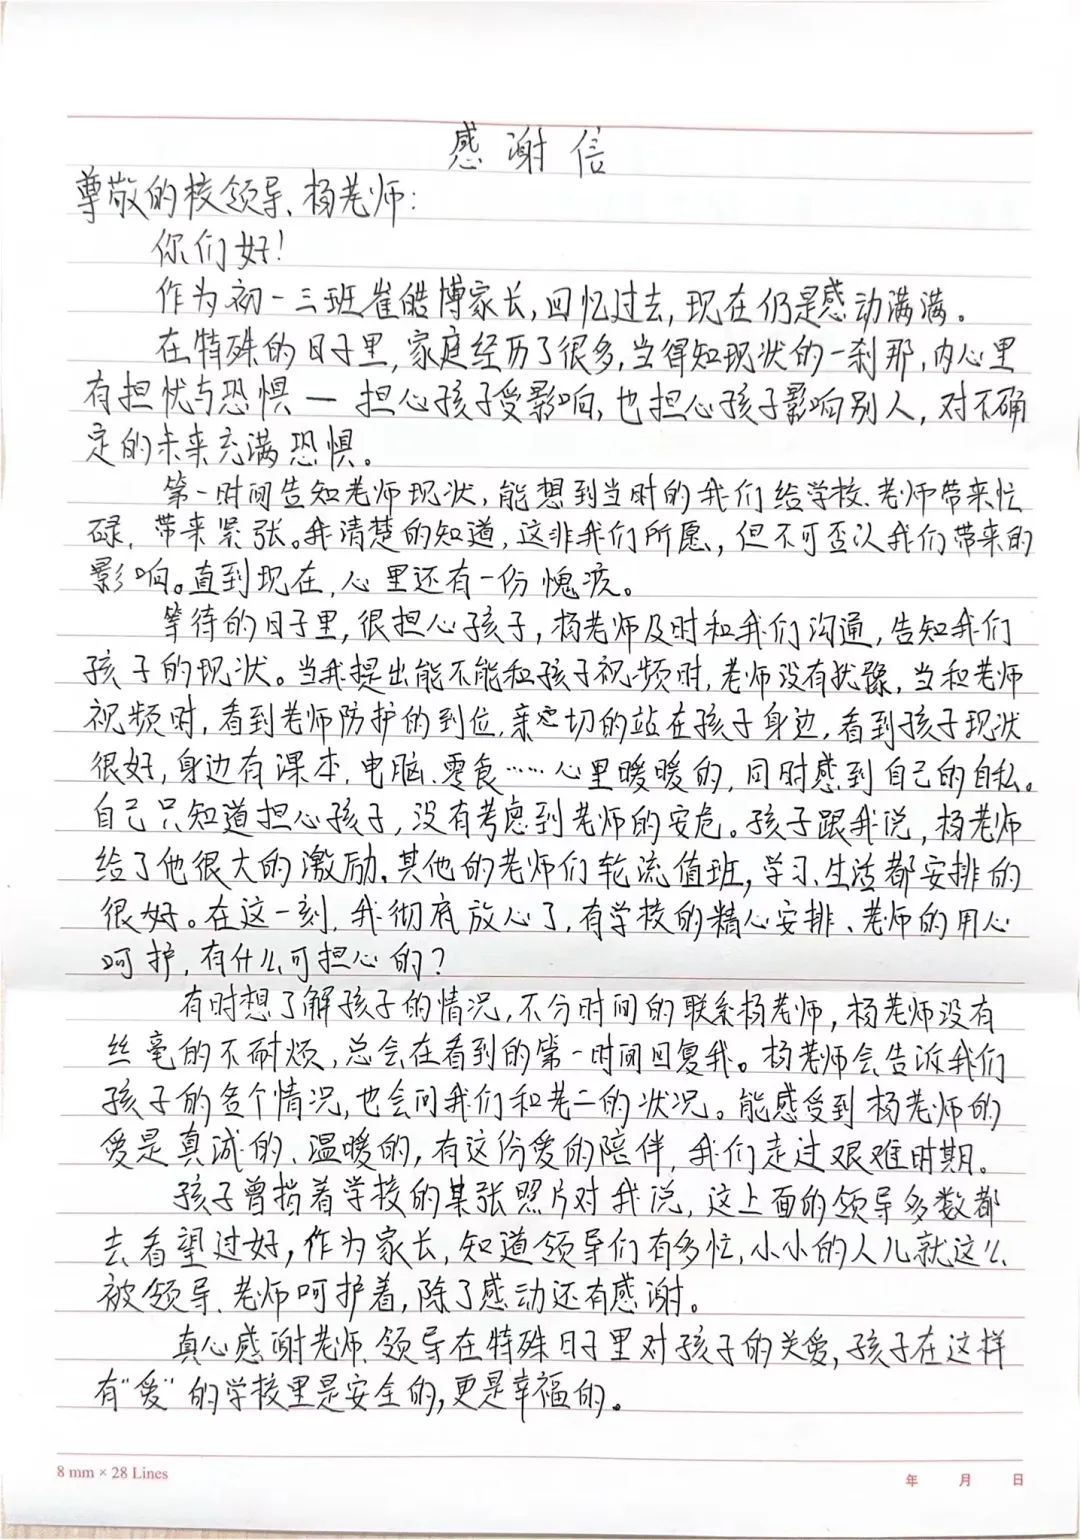 感谢信
尊敬的校领导、杨老师：
你们好！
作为初一三班崔皓博家长，回忆过去，现在仍是感动满满。
在特殊的日子里，家庭经历了很多，当得知现状的一刹那，内心里
有担忧与恐惧一担心孩子受影响，也担心孩子影响别人，对不确
定的未来充满恐惧。
第一时间告知老师现状，能想到当时的我们给学校、老师带来忙
碌，带来紧张。我清楚的知道，这非我们所愿，但不可否认我们带来的
影响。直到现在，心里还有一份愧疚。
等待的日子里，很担心孩子，杨老师及时和我们沟通，告知我们
孩子的现状。当我提出能不能和孩子视频时，老师没有犹豫，当和老师
视频时，看到老师防护的到位，亲切的站在孩子身边，看到孩子现状
很好，身边有课本、电脑、零食……心里暖暖的，同时感到自己的自私。
自己只知道担心孩子，没有考虑到老师的安危。孩子跟我说，杨老师
给了他很大的激励，其他的老师们轮流值班，学习、生活都安排的
很好。在这一刻，我彻底放心了，有学校的精心安排、老师的用心
呵护，有什么可担心的？
有时想了解孩子的情况，不分时间的联系杨老师，杨老师没有
丝毫的不耐烦，总会在看到的第一时间回复我。杨老师会告诉我们
孩子的各个情况，也会问我们和老二的状况。能感受到杨老师的
爱是真诚的、温暖的，有这份爱的陪伴，我们走过艰难时期。
孩子曾指着学校的某张照片对我说，这上面的领导多数都
去看望过好，作为家长，知道领导们有多忙，小小的人儿就这么
被领导、老师呵护着，除了感动还有感谢。
真心感谢老师、领导在特殊日子里对孩子的关爱，孩子在这样
有“爱”的学校里是安全的，更是幸福的。
8 mm × 28 Lines
年 月 日